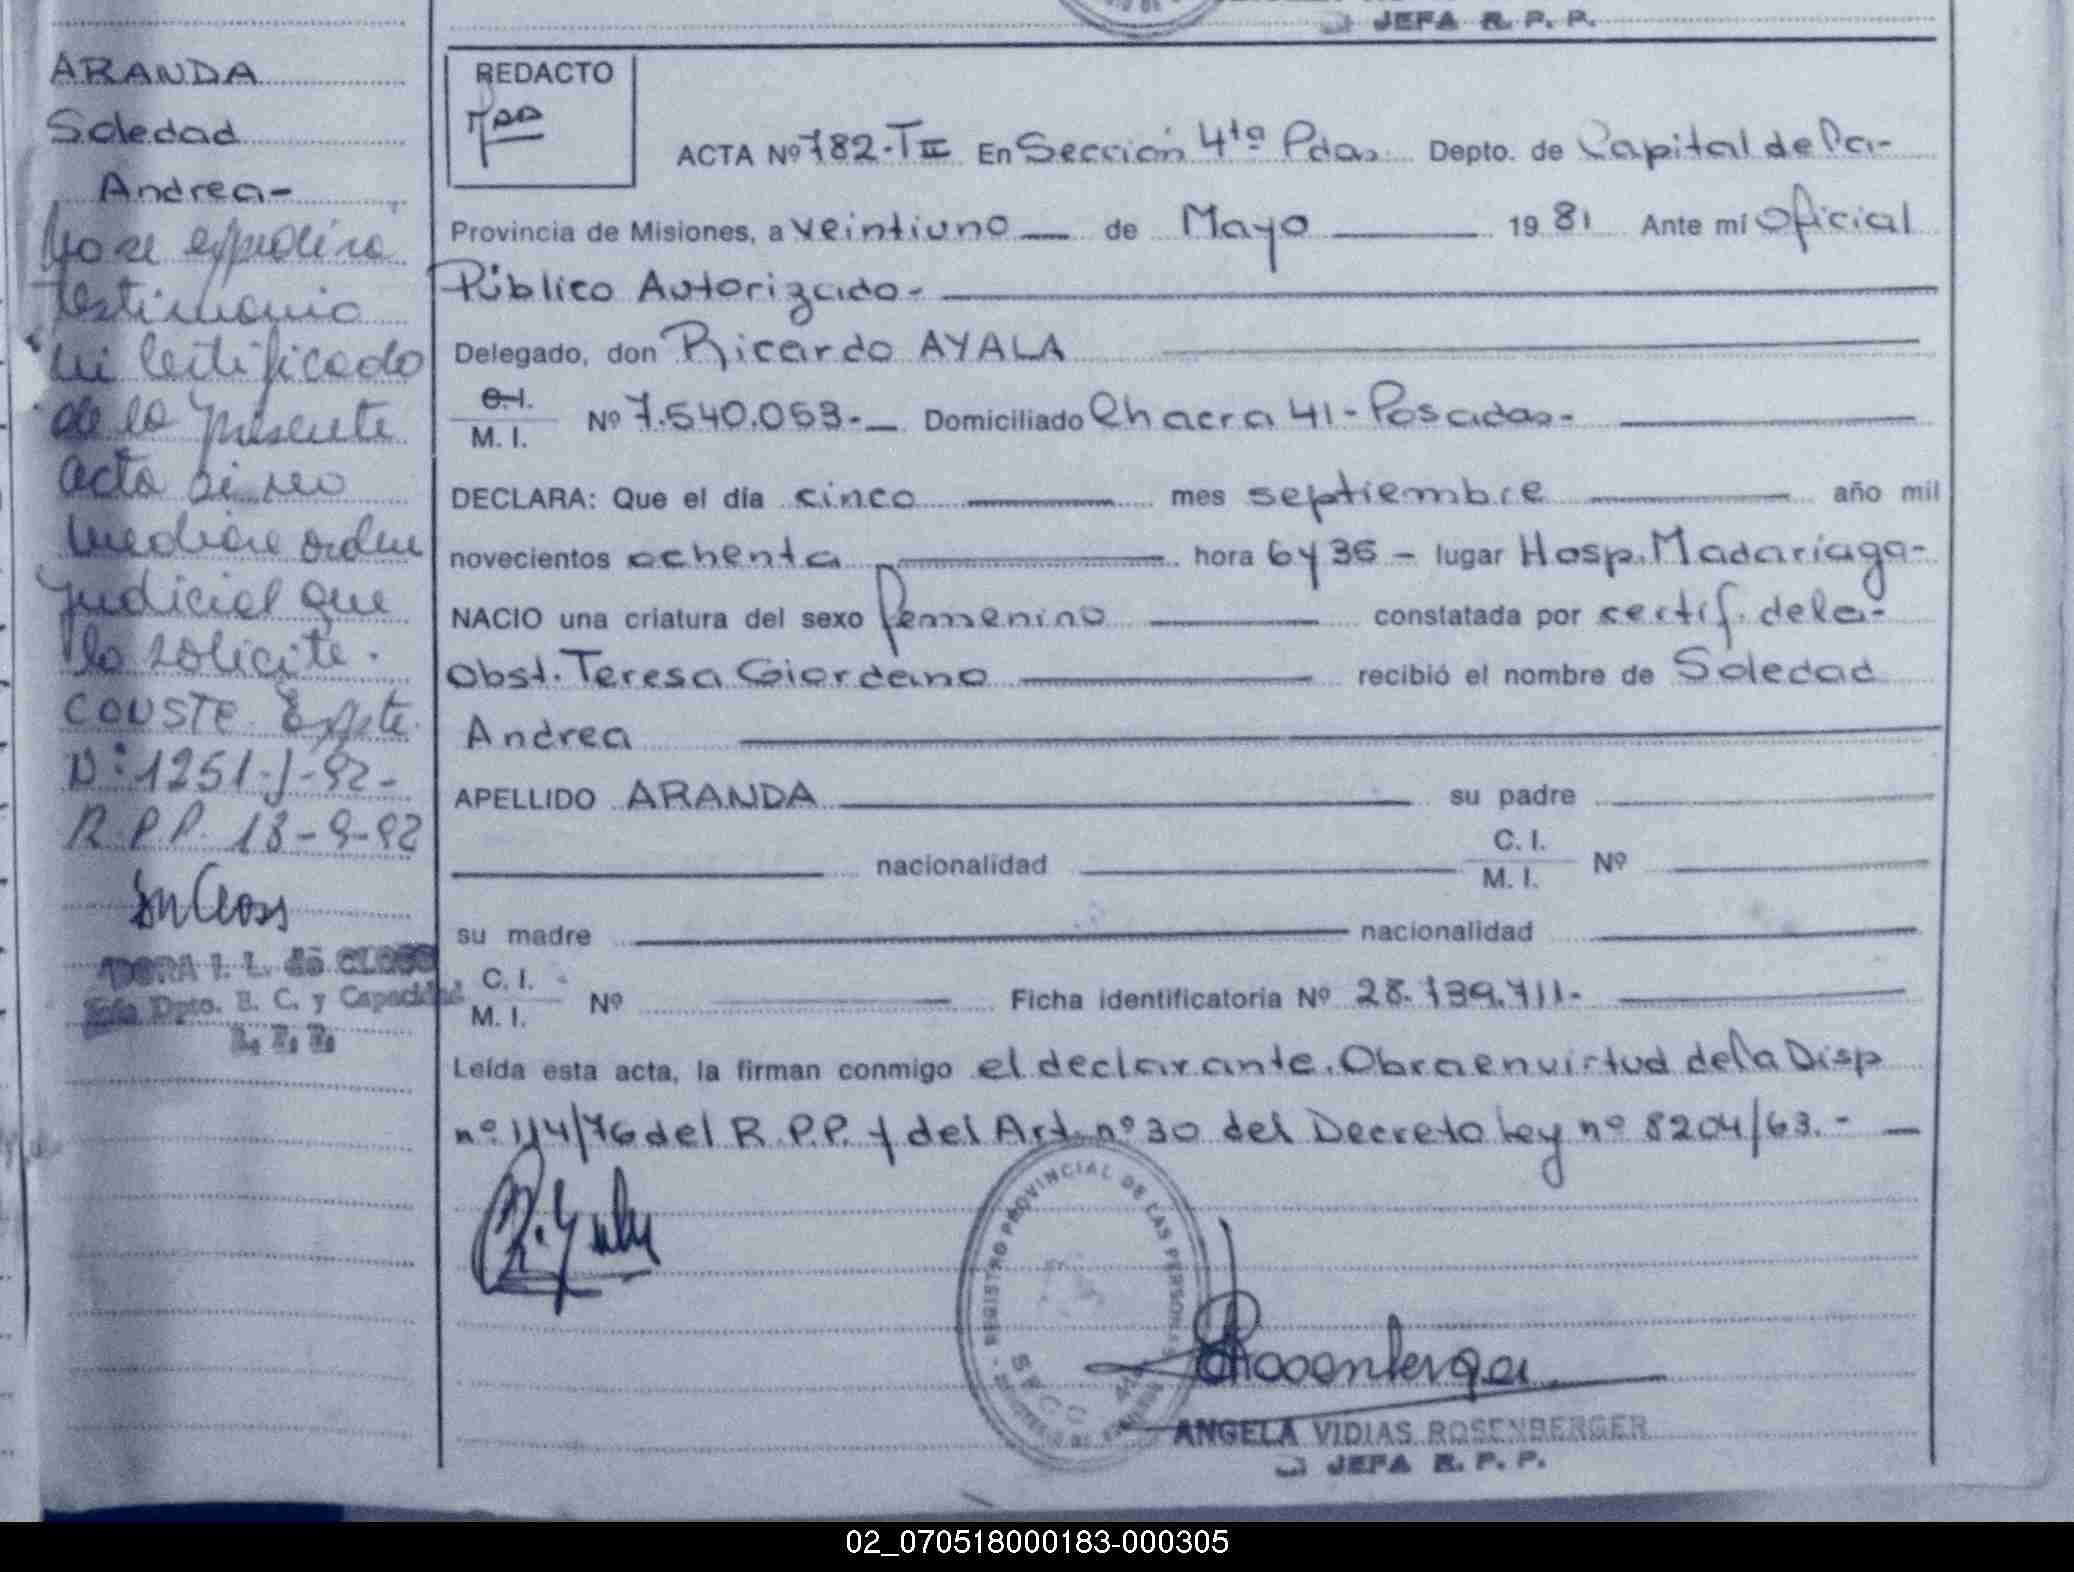 JEFA R. P. P.
ARANDA
Soledad
Andrea-
No se expedirá
testimonio
ni certificado
de la presente
acta si no
mediare orden
judicial que
lo solicite.
CONSTE Expte.
N: 1251-J-92-
R.P.P. 18-9-92
I. L. de CLOSS
Jefa Dpto. E. C. y Capacidad
R. P. P.
REDACTO
ACTA Nº 782-TII En Sección 4ta Pdas Depto. de Capital de la-
Provincia de Misiones, a veintiuno de Mayo 19 81 Ante mí Oficial
Público Autorizado-
Delegado, don Ricardo AYALA
C.I.
M. I. Nº 7.540.053.- Domiciliado Chacra 41-Posadas-
DECLARA: Que el día cinco mes septiembre año mil
novecientos ochenta hora 6y35 - lugar Hosp. Madariaga-
NACIO una criatura del sexo femenino constatada por certif. de la-
Obst. Teresa Giordano recibió el nombre de Soledad
Andrea
APELLIDO ARANDA su padre
nacionalidad C. I.
M. I. Nº
su madre nacionalidad
C. I.
M. I. Nº Ficha identificatoria Nº 28.739.711-
Leída esta acta, la firman conmigo el declarante. Obra en virtud de la Disp
nº 114/76 del R.P.P. y del Art. nº 30 del Decreto Ley nº 8204/63.-
REGISTRO PROVINCIAL DE LAS PERSONAS
SECC
Rosenberger
ANGELA VIDIAS ROSENBERGER
JEFA R. P. P.
02_070518000183-000305